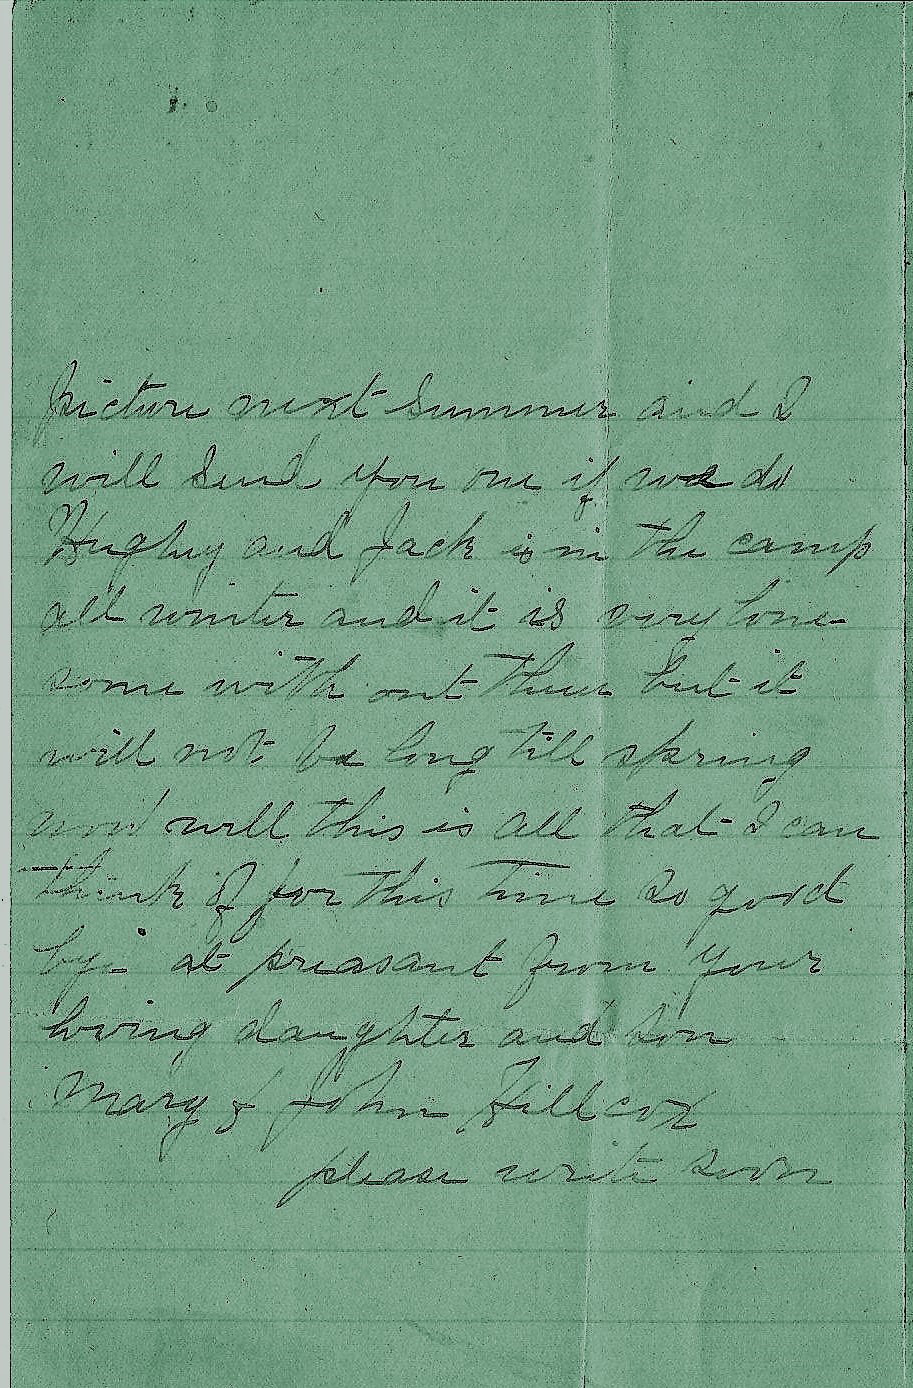 picture next summer and I
will send you one if we do
Hughy and Jack is in the camp
all winter and it is very lone
some with out them but it
will not be long till spring
now well this is all that I can
think of for this time so good
bye at preasant from your
loving daughter and son
Mary & John Hillcox
please write soon